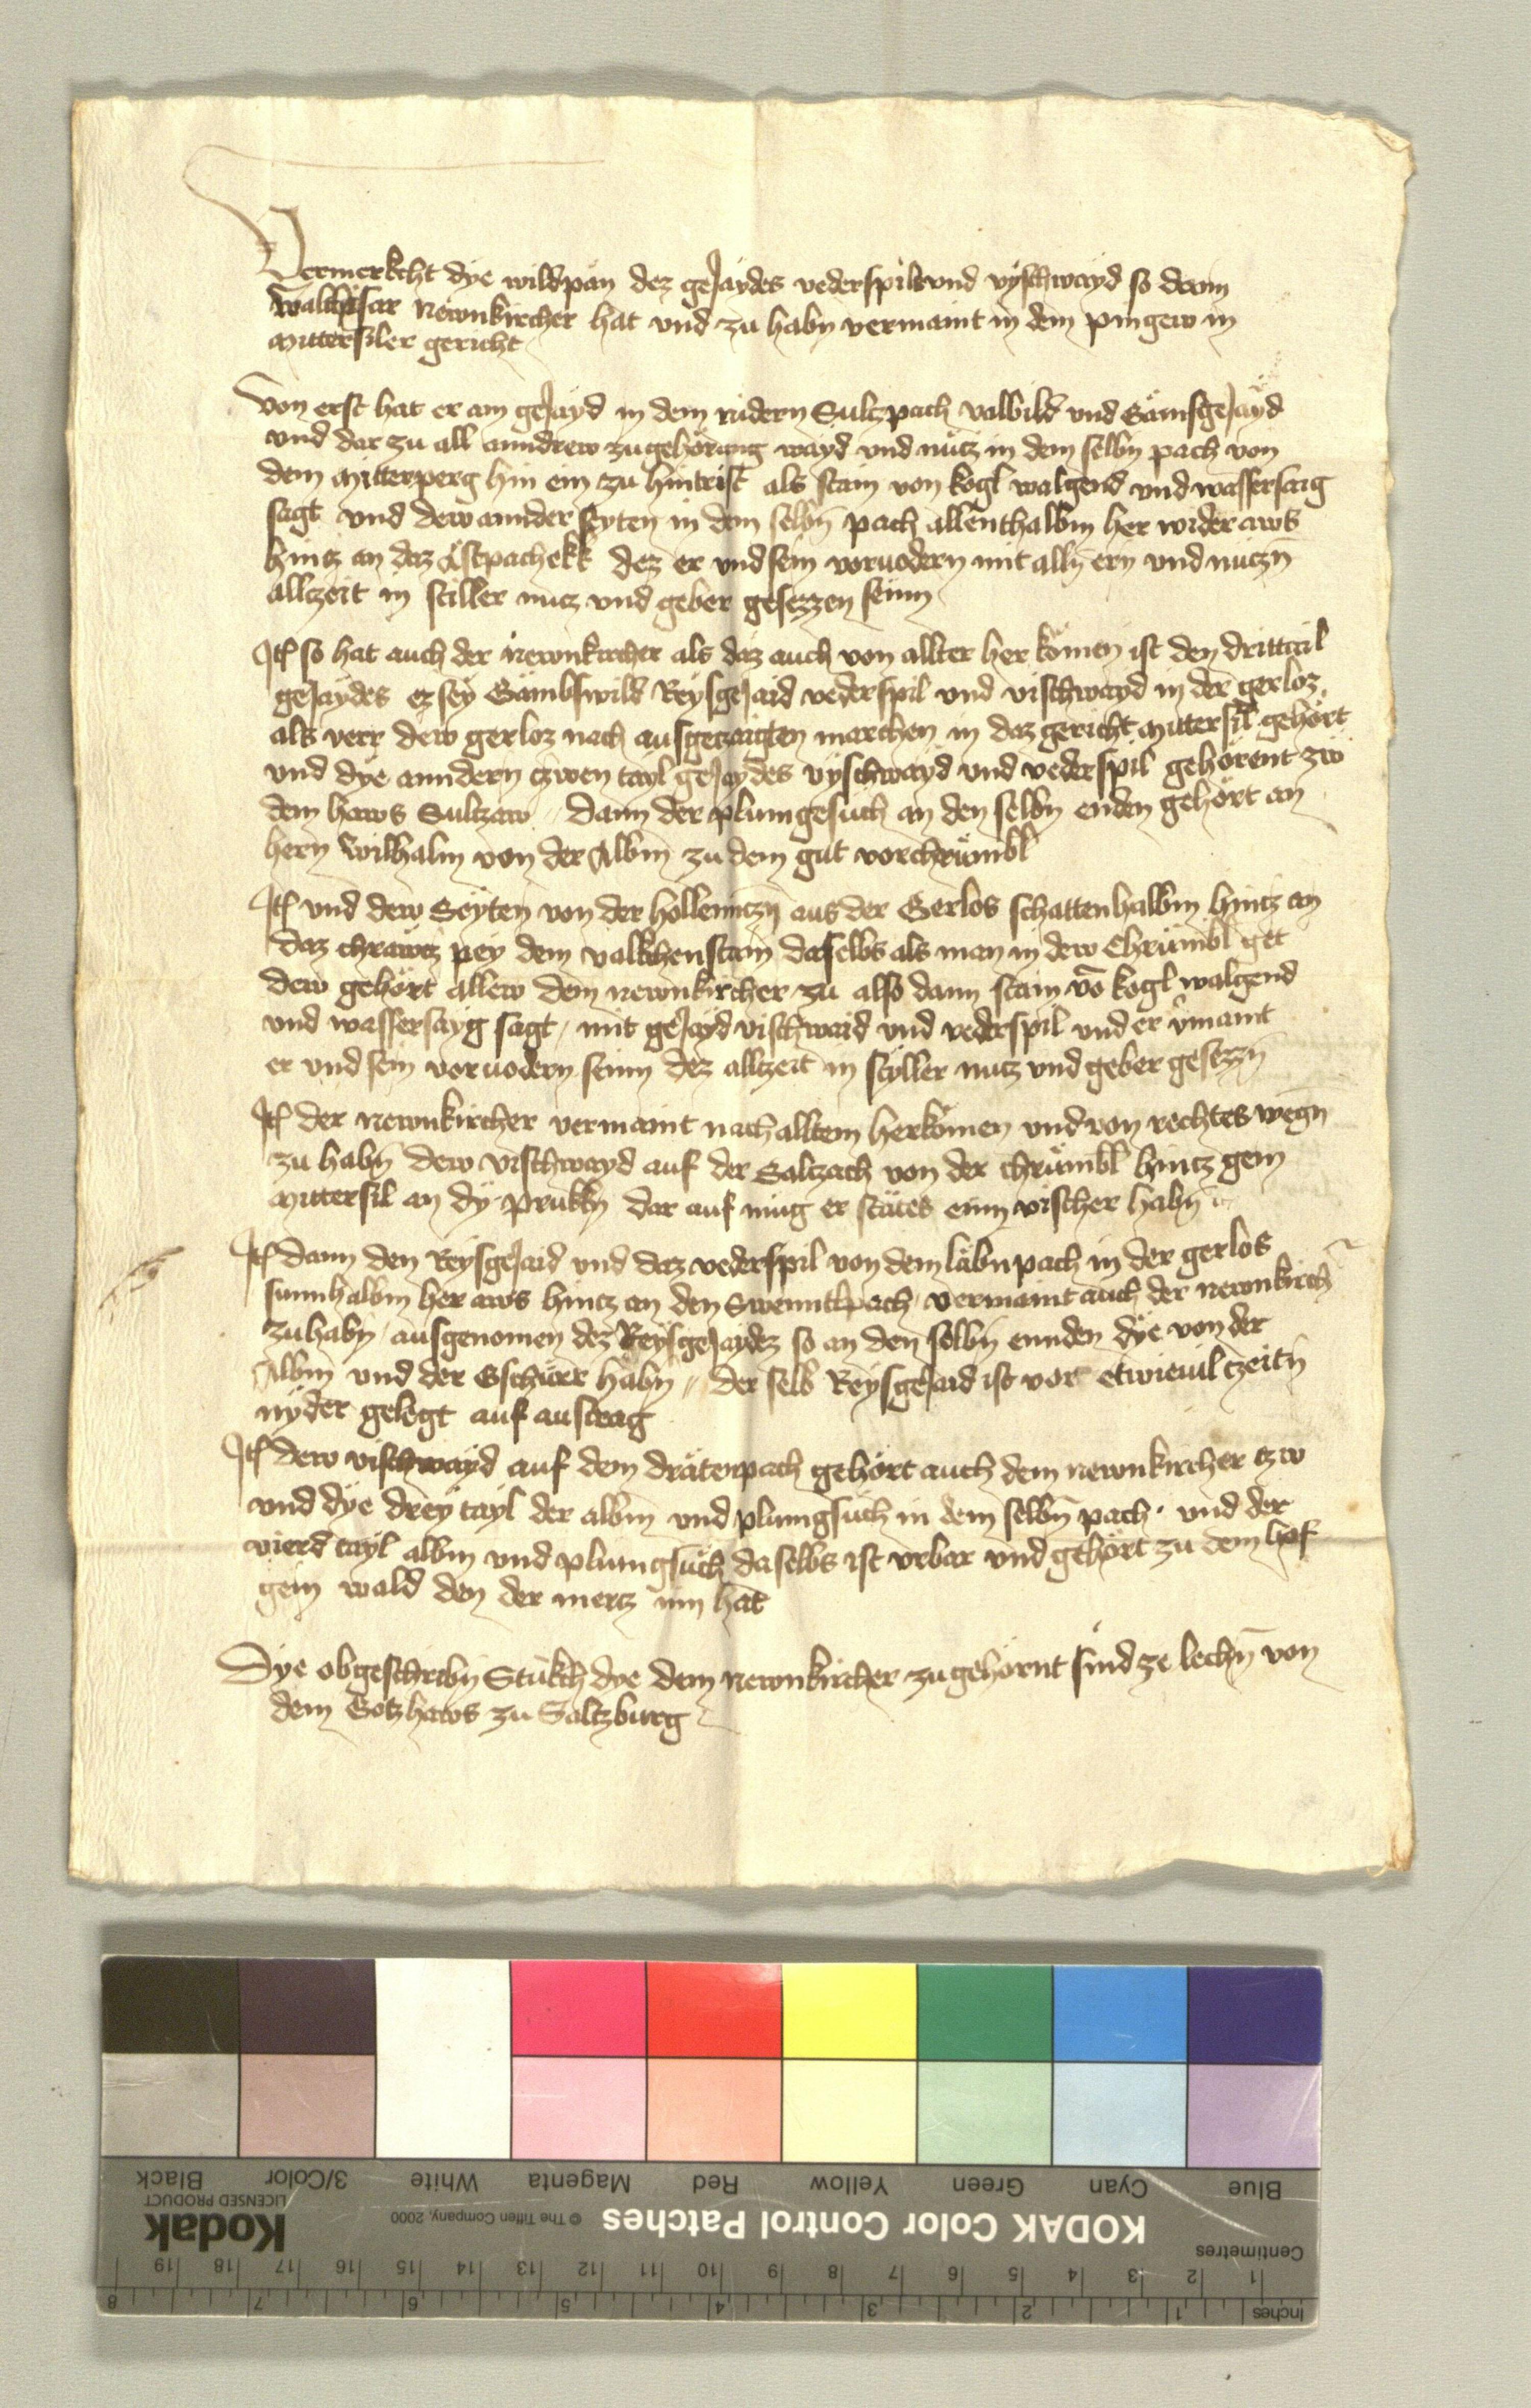 Vermerkcht dye wildpän dez geJaydes vederspils vnd vÿschwayd so dann
walthisar Newnkircher hat vnd zu habn vermaint in dem pingew in
Mittersiler gericht
Von erst hat er ain geJayd in dem nidern Sultzpach valbild vnd GämsgeJayd
vnd dar zu all anndrew zugehörung wayd vnd nutz in dem selbn pach von
dem Mitterperg hin ein zu hintrist als stain von kogl walgend vnd wassersaig
sagt vnd dew annder seyten in dem selbn pach allenthalbm her wider aws
hintz an daz Astpachekk dez er vnd sein voruodern mit alln ern vnd nutzn
allzeit in stiller nutz vnd geber gesezzen seinn
Itē so hat auch der Newnkircher als daz auch von allter her kömen ist den drittail
geJaydes ez sey Gämbswild ReysgeJaid vederspil vnd vischwayd in der gerloz
als verr dew gerloz nach ausgetzaigten marchen in daz gericht Mittersil gehört
vnd dÿe anndern tzwen tayl geJaydes vÿschwayd vnd vederspil gehörent zw
dem haws Sultzaw Dann der plumgesuch an den selbn enden gehört an
hern Wilhalm von der Albm zu dem gut vorchrümbl
Itē vnd dew Seÿten von der hollenitzn aus der Gerlos schattenhalbm hintz an
daz chräwtz peÿ dem valkhenstain daselbs als man in dew Chrümbl get
dew gehört allew dem newnkircher zu also dann stain vō kogl walgend
vnd wassersayg sagt mit geJayd vischwaid vnd vederspil vnd er v̄maint
er vnd sein voruodern seinn dez allzeit in stÿller nutz vnd geber gesezzn
Itē der newnkircher vermaint nach alltem herkömen vnd von rechtes wegn
zu habn dew vischwayd auf der Saltzach von der chrümbl hintz gem
Mittersil an dÿ prukkn dar auf mug er stätes einn vischer habn
Itē dann den ReysgeJaid vnd daz vederspil von dem läbnpach in der gerlos
sunnhalbm her aws hintz an den Swenntpach vermaint auch der newnkirch
zu habn ausgenomen dez ReysgeJaydz so an den selbn ennden dye von der
Albm vnd der Gschürr habn der selb ReysgeJaid ist vor etwieuil tzeitn
nÿder gelegt auf austrag
Itē dew vischwayd auf dem drätenpach gehört auch dem newnkircher tzw
vnd dÿe dreÿ tayl der albm vnd plumgsuch in dem selbn pach vnd der
vierd tayl albm vnd plumgsuch daselbs ist vrbar vnd gehört zu dem hof
gem wald den der mertz inn hat
Dye obgeschribn Stukch dye dem newnkircher zugehörnt sind ze lechn von
dem Gotzhaws zu Saltzburg
Black 3/Color White Magenta Red Yellow Green Cyan Blue
LICENSED PRODUCT
Kodak © The Tiffen Company, 2000 KODAK Color Control Patches
Centimetres
19 18 17 16 15 14 13 12 11 10 9 8 7 6 5 4 3 2 1
8 7 6 5 4 3 2 1 Inches